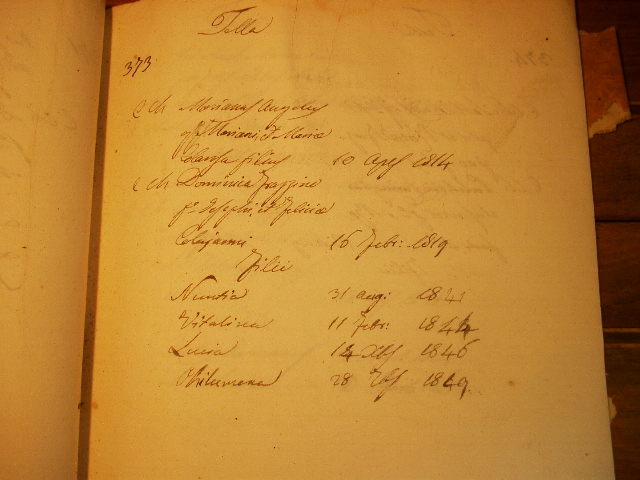 Tolla
373
c ch Marianus Angelus
q.m Mariani, et Maria
filius 10 Aprs 1814
c ch Dominica Fazzino
f.a Josephi, et Felicia
16 Febr: 1819
Filii
Nuntia 31 aug: 1841
Vitalina 11 Febr: 1844
Lucia 14 Xbs 1846
Philumena 28 1849.